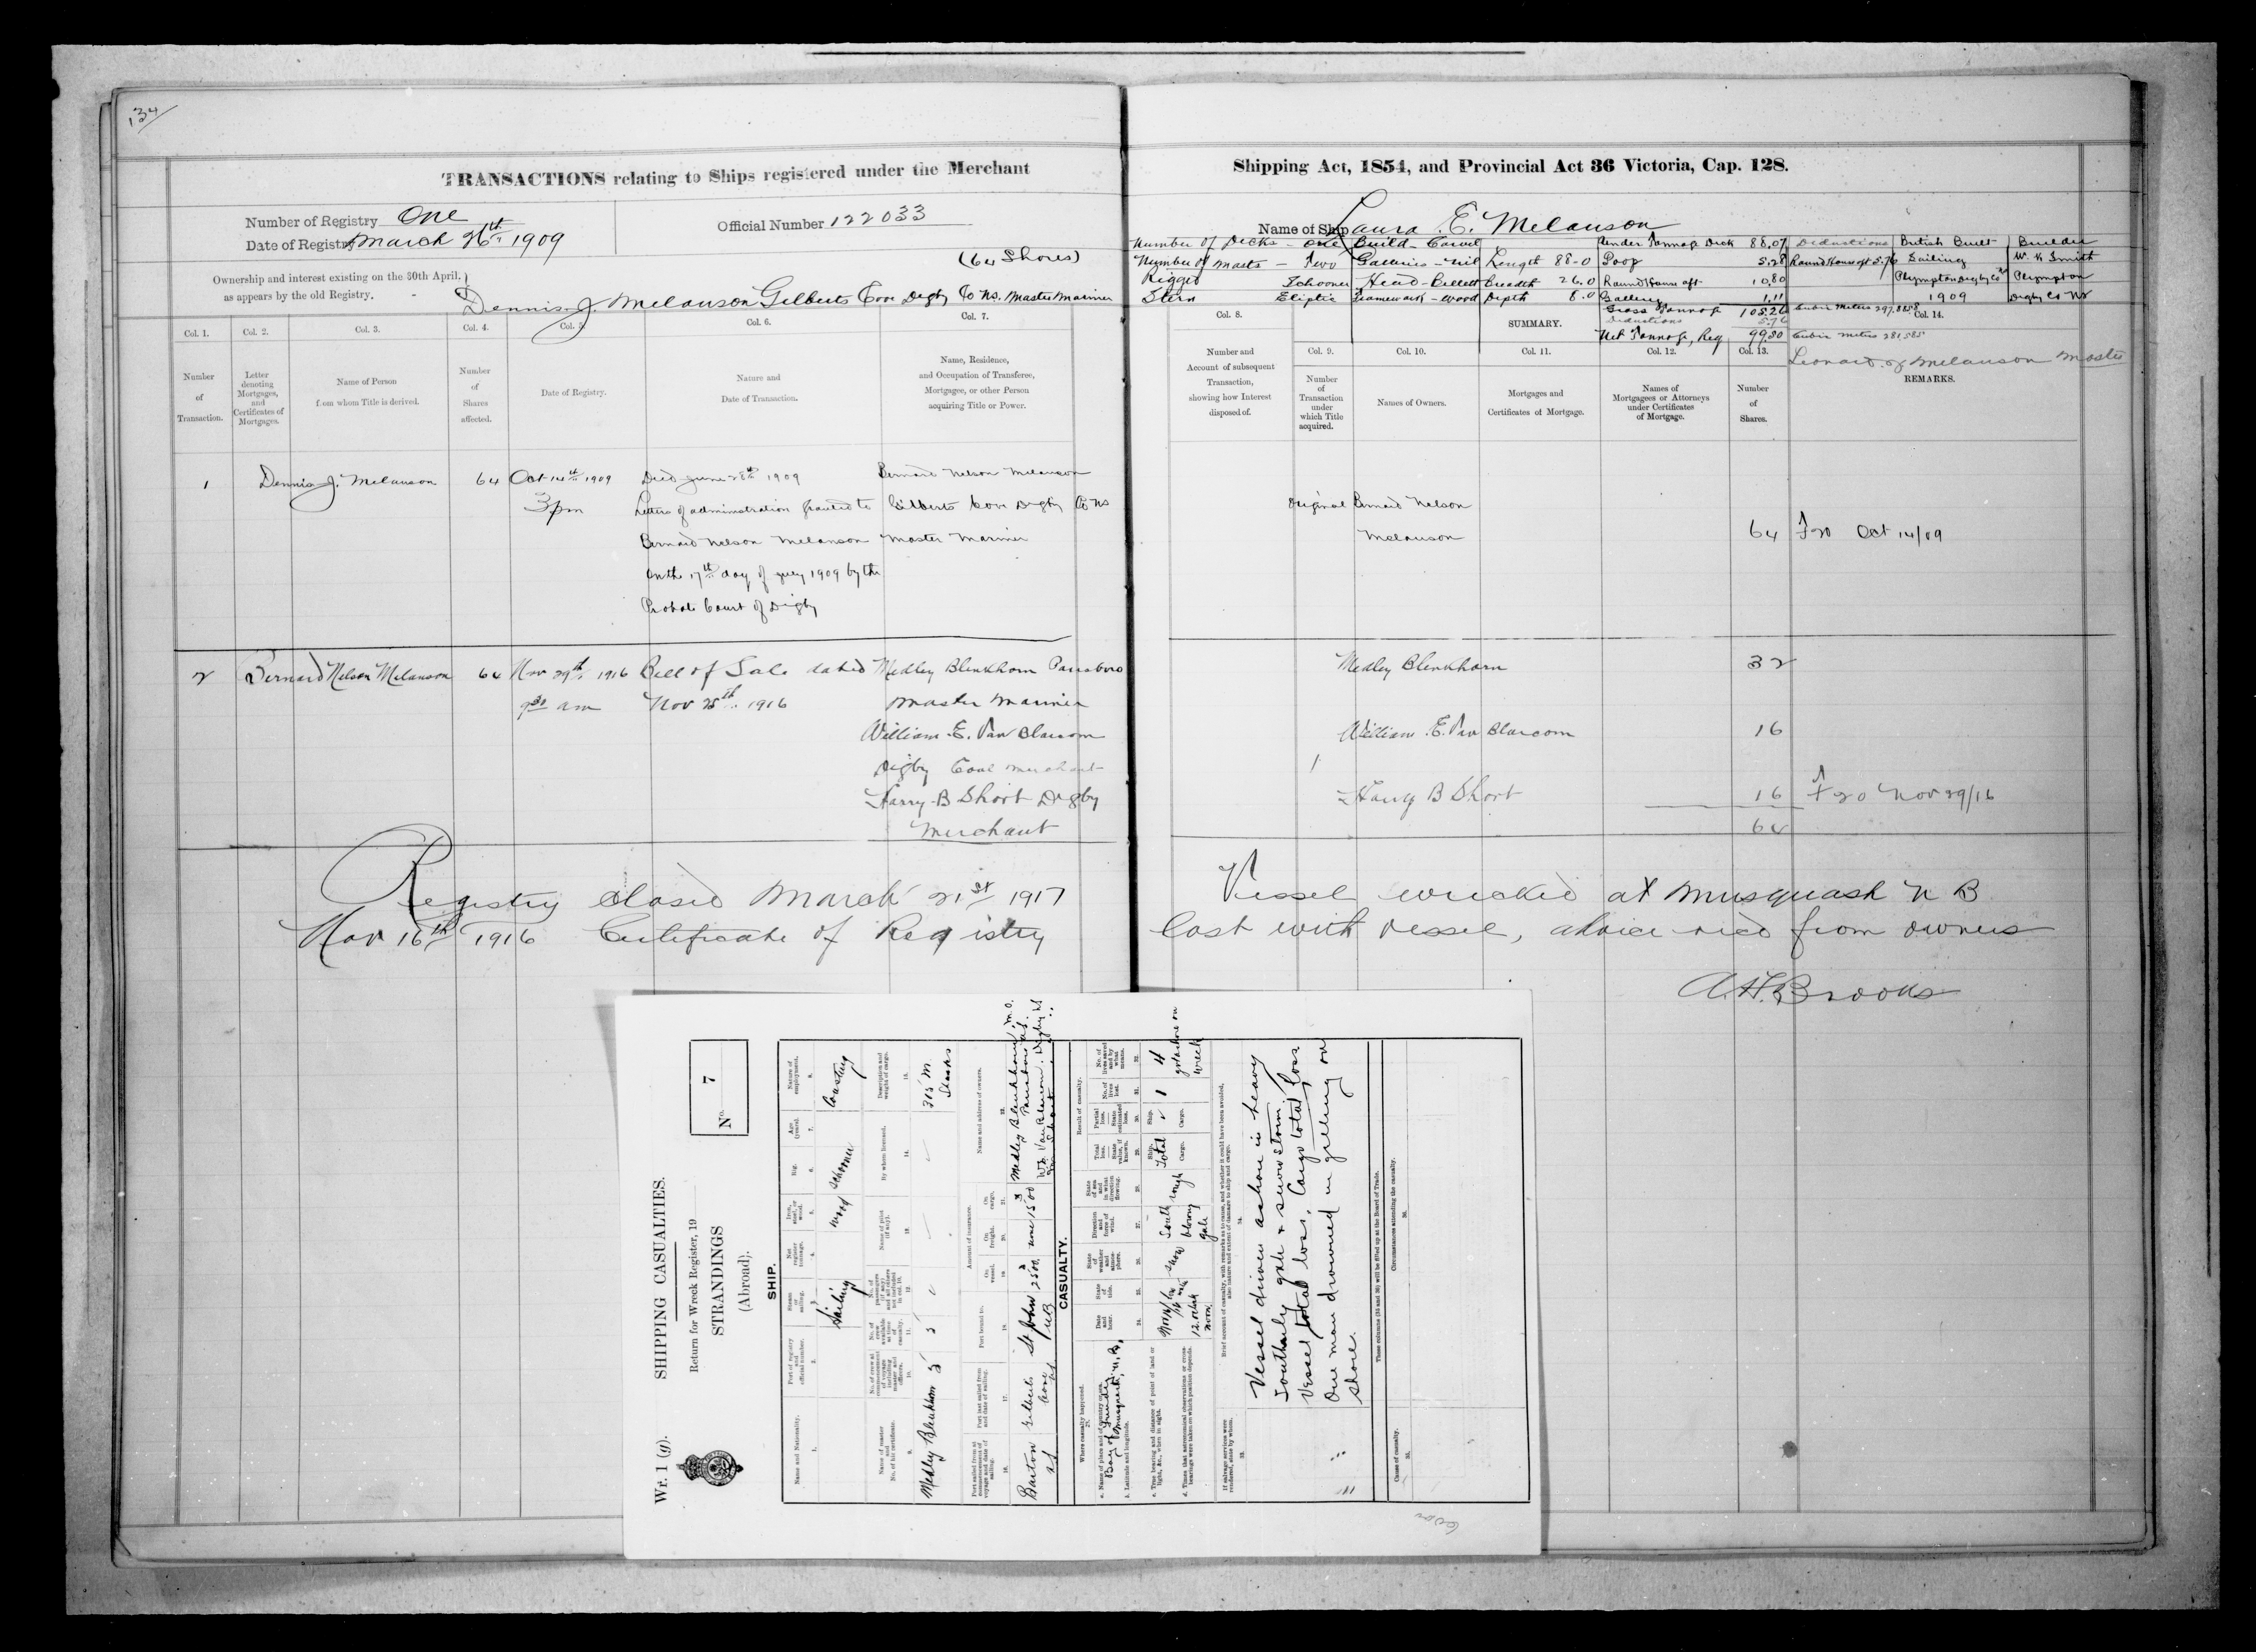 134
TRANSACTIONS relating to Ships registered under the Merchant
Shipping Act, 1854, and Provincial Act 36 Victoria, Cap. 128.
Number of Registry One
Date of Registry March 26th 1909
Official Number 122033
(64 Shares)
Ownership and interest existing on the 30th April,
as appears by the old Registry.
Dennis J. Melanson Gilberts Cove Digby Co NS. Master Mariner
Name of Ship Laura E. Melanson
Number of Decks - One Build - Carvel Under Tonnage Deck 88.07 Deductions British Built Builder
Number of Masts - Two Galleries - Nil Length 88.0 Poop 5.28 Round House aft 5.76 Sailing W. H Smith
Rigged Schooner Head - Billett Breadth 26.0 Round House aft 10.80 Plympton Digby Co NS Plympton
Stern Eliptic Framework - Wood Depth 8.0 Gallery 1.11 1909 Digby Co NS
Gross Tonnage 105.26 Cubic Meters 297.8858
Deductions 5.76
Net Tonnage, Reg 99.50 Cubic Meters 281.585
Leonard J Melanson Master
Col. 1. Col. 2. Col. 3. Col. 4. Col. 5. Col. 6. Col. 7.
Number of Transaction.
Letter denoting Mortgages, and Certificates of Mortgage.
Name of Person from whom Title is derived.
Number of Shares affected.
Date of Registry.
Nature and Date of Transaction.
Name, Residence, and Occupation of Transferee, Mortgagee, or other Person acquiring Title or Power.
Col. 8. SUMMARY. Col. 14.
Col. 9. Col. 10. Col. 11. Col. 12. Col. 13.
Number and Account of subsequent Transaction, showing how Interest disposed of.
Number of Transaction under which Title acquired.
Names of Owners.
Mortgages and Certificates of Mortgage.
Names of Mortgagees or Attorneys under Certificates of Mortgage.
Number of Shares.
REMARKS.
1 Dennis J. Melanson 64 Oct 14th 1909 Died June 28th 1909 Bernard Nelson Melanson
3 pm Letters of administration granted to Gilberts Cove Digby Co NS
Bernard Nelson Melanson Master Mariner
on the 17th day of July 1909 by the
Probate Court of Digby
Original Bernard Nelson
Melanson 64 F 20 Oct 14/09
2 Bernard Nelson Melanson 64 Nov 29th 1916 Bill of Sale dated Medley Blenkhorn Parrsboro
9 30 am Nov 25th 1916 Master Mariner
William E. Van Blarcom
Digby Coal Merchant
Harry B Short Digby
Merchant
Medley Blenkhorn 32
William E. Van Blarcom 16
Harry B Short 16 F 20 Nov 29/16
64
Registry closed March 21st 1917 Vessel wrecked at Musquash N B
Nov 16th 1916 Certificate of Registry lost with vessel, advice recd from owners
A. H. Brooks
Wr. 1 (g). SHIPPING CASUALTIES.
Return for Wreck Register, 19
STRANDINGS
(Abroad).
No. 7
SHIP.
Name and Nationality.
Port of registry and official number.
Steam or sailing.
Net register tonnage.
Iron, steel, or wood.
Rig.
Age (years).
Nature of employment.
Sailing wood schooner Coasting
Name of master and No. of his certificate.
By whom licensed.
Description and weight of cargo.
Medley Blenkhorn 5 5 315 M.
Port bound to.
Amount of insurance.
On vessel. On freight. On cargo.
Name and address of owners.
Barton NS Gilberts Cove NS St John NB 2500 none 1500 Medley Blenkhorn M.O.
Parrsboro NS.
Wm Van Blarcom Digby NS
CASUALTY.
Where casualty happened.
Result of casualty.
Bay of Fundy
Musquash, N.B,
12. oclock noon
snow
South blowing gale
rough
Ship. Total
Cargo.
1
4
got ashore on wreck
Brief account of casualty, with remarks as to cause, and whether it could have been avoided,
also nature and extent of damage to ship and cargo.
Vessel driven ashore in heavy
Southerly gale & snow storm,
Vessel total loss, Cargo total loss
One man drowned in getting on
shore.
These columns (35 and 36) will be filled up at the Board of Trade.
Cause of casualty.
Circumstances attending the casualty.